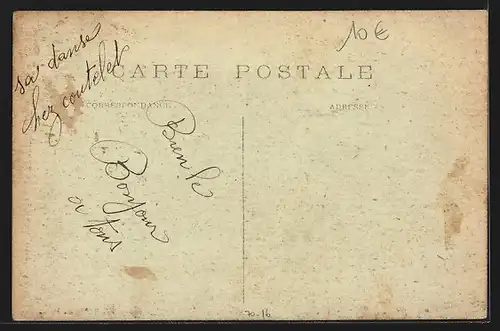 sa danse
chez coutelet
10€
CARTE POSTALE
CORRESPONDANCE
ADRESSE
Bien le
Bonjour
a tous
70-16